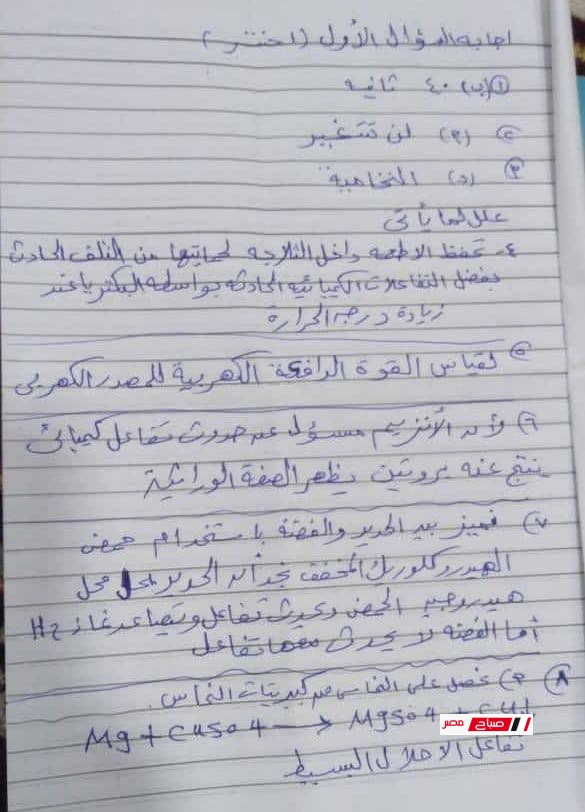 اجابه السؤال الأول (اختر)
① (ب) ٤٠ ثانيه
② (م) لن تتغير
③ (د) النخامية
علل لما يأتى
٤- تحفظ الاطعمه داخل الثلاجه لحمايتها من التلف الحادث
بفضل التفاعلات الكيميائيه الحادثه بواسطه البكتريا عند
زيادة درجه الحرارة
⑤ لقياس القوة الدافعة الكهربية للمصدر الكهربى
⑥ لأن الأنزيم مسؤول عن حدوث تفاعل كيميائى
ينتج عنه بروتين يظهر الصفة الوراثية
⑦ نميز بين الحديد والفضة باستخدام حمض
الهيدروكلوريك المخفف نجد أن الحديد يحل محل
هيدروجين الحمض ويحدث تفاعل ويتصاعد غاز H2
أما الفضه لا يحدث معها تفاعل
⑧ م) نحصل على النحاس من كبريتات النحاس.
Mg + CuSO4 → MgSO4 + Cu
تفاعل الاحلال البسيط
صباح مصر